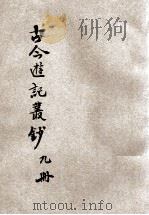 古今遊記叢鈔 九册